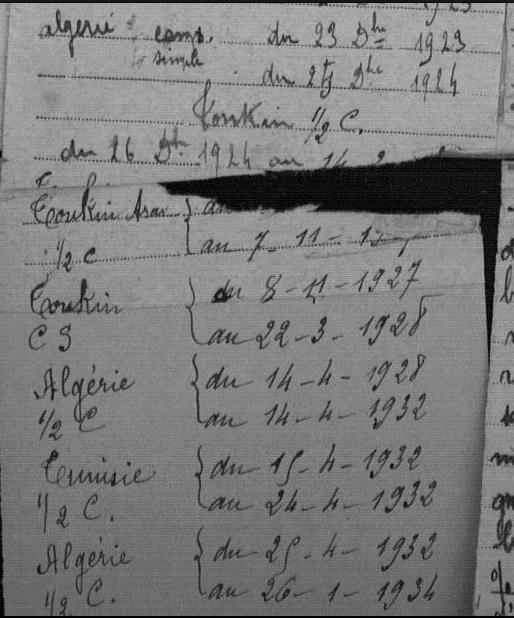 1923
Algerie camp. du 23 Dbre 1923
simple
du 25 Dbre 1924
Tonkin 1/2 C.
du 26 Dbre 1924 au 14
Tonkin
1/2 C au 7 - 11 -
Tonkin du 8 - 11 - 1927
C S au 22 - 3 - 1928
Algérie du 14 - 4 - 1928
1/2 C au 14 - 4 - 1932
Tunisie du 15 - 4 - 1932
1/2 C. au 24 - 4 - 1932
Algérie du 25 - 4 - 1932
1/2 C. au 26 - 1 - 1934